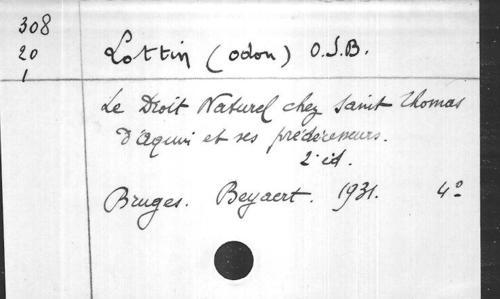 308
20
1
Lottin (Odon) O.S.B.
Le Droit Naturel chez Saint Thomas
d'Aquin et ses prédécesseurs.
2e éd.
Bruges. Beyaert. 1931. 4º